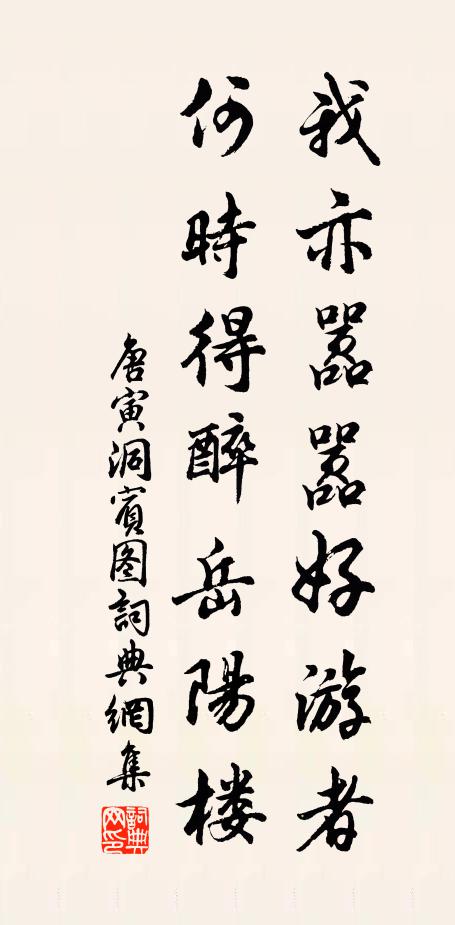 我亦嚣嚣好游者
何時得醉岳陽楼
唐寅洞賓图詞典網集
詞典網印